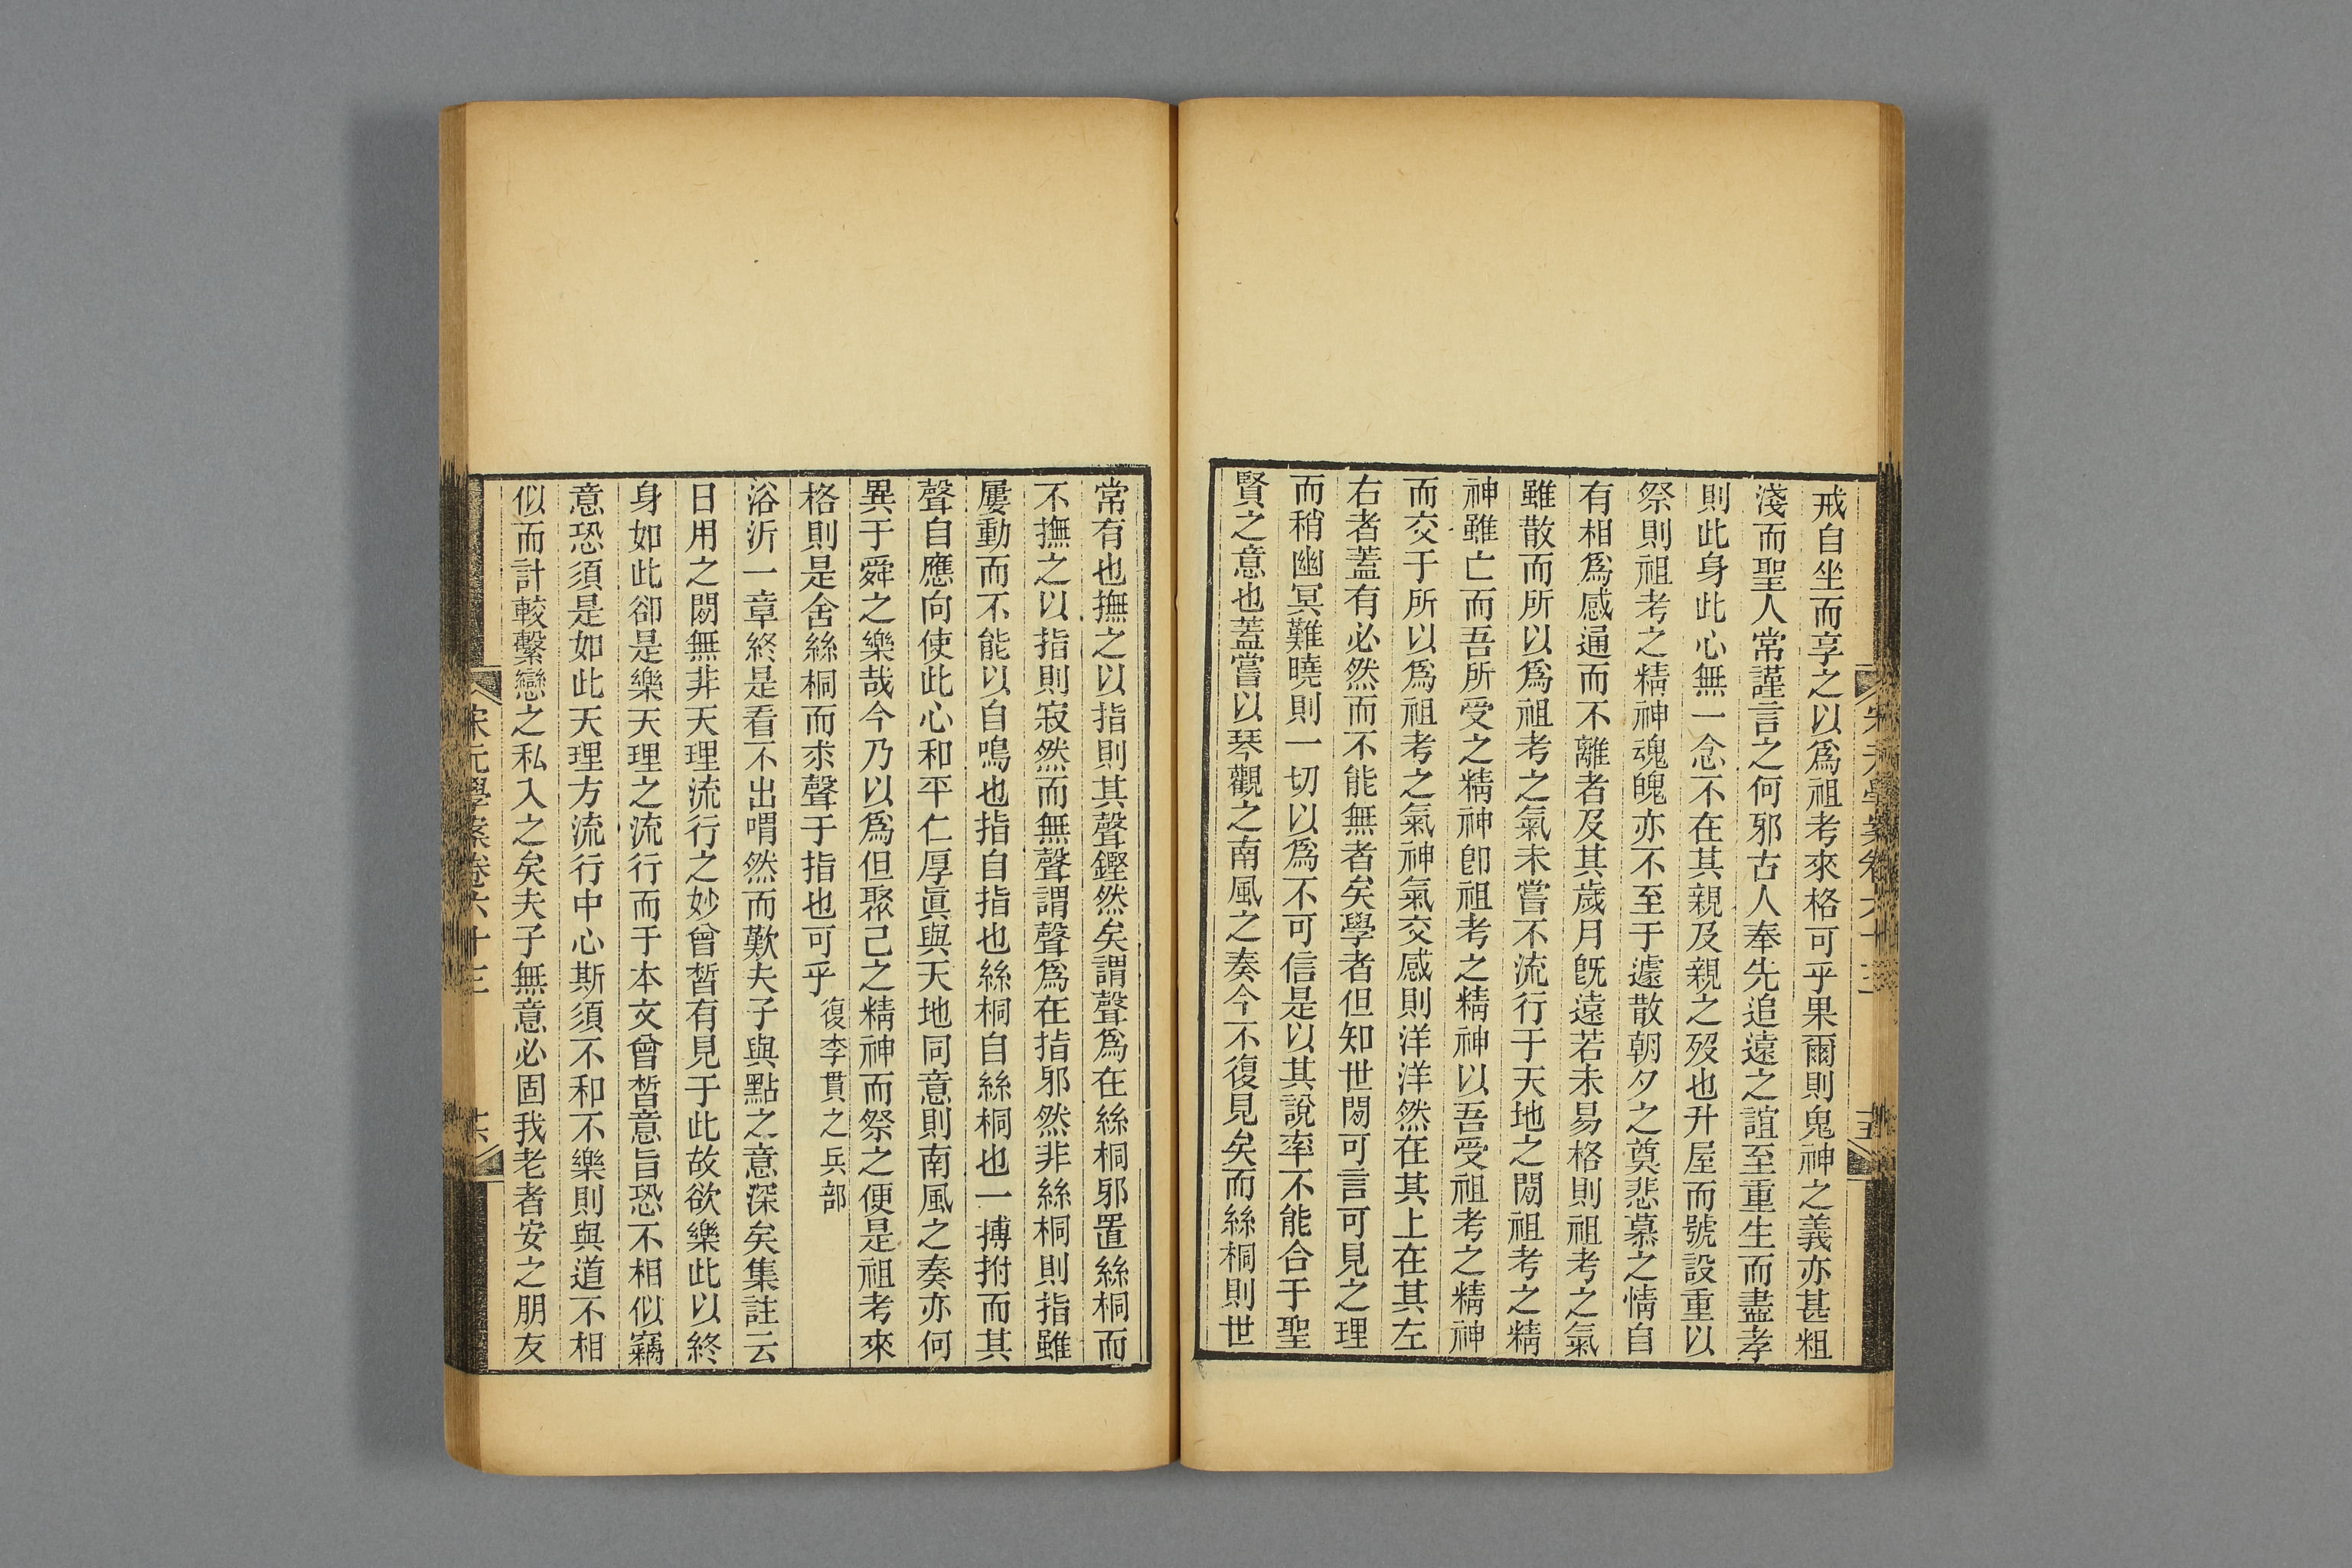 戒自坐而享之以爲祖考來格可乎果爾則鬼神之義亦甚粗
淺而聖人常謹言之何邪古人奉先追遠之誼至重生而盡孝
則此身此心無一念不在其親及親之歿也升屋而號設重以
祭則祖考之精神魂魄亦不至于遽散朝夕之奠悲慕之情自
有相爲感通而不離者及其歲月旣遠若未易格則祖考之氣
雖散而所以爲祖考之氣未嘗不流行于天地之閒祖考之精
神雖亡而吾所受之精神卽祖考之精神以吾受祖考之精神
而交于所以爲祖考之氣神氣交感則洋洋然在其上在其左
右者蓋有必然而不能無者矣學者但知世閒可言可見之理
而稍幽冥難曉則一切以爲不可信是以其說率不能合于聖
賢之意也蓋嘗以琴觀之南風之奏今不復見矣而絲桐則世
常有也撫之以指則其聲鏗然矣謂聲爲在絲桐邪置絲桐而
不撫之以指則寂然而無聲謂聲爲在指邪然非絲桐則指雖
屢動而不能以自鳴也指自指也絲桐自絲桐也一搏拊而其
聲自應向使此心和平仁厚眞與天地同意則南風之奏亦何
異于舜之樂哉今乃以爲但聚己之精神而祭之便是祖考來
格則是舍絲桐而求聲于指也可乎復李貫之兵部
浴沂一章終是看不出喟然而歎夫子與點之意深矣集註云
日用之閒無非天理流行之妙曾晳有見于此故欲樂此以終
身如此卻是樂天理之流行而于本文曾晳意旨恐不相似竊
意恐須是如此天理方流行中心斯須不和不樂則與道不相
似而計較繫戀之私入之矣夫子無意必固我老者安之朋友
宋元學案卷六十三